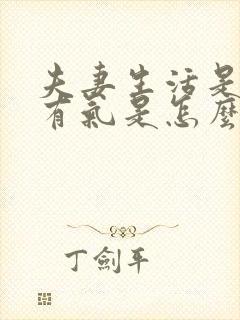 夫妻生活是
有氣是怎麼
丁劍平